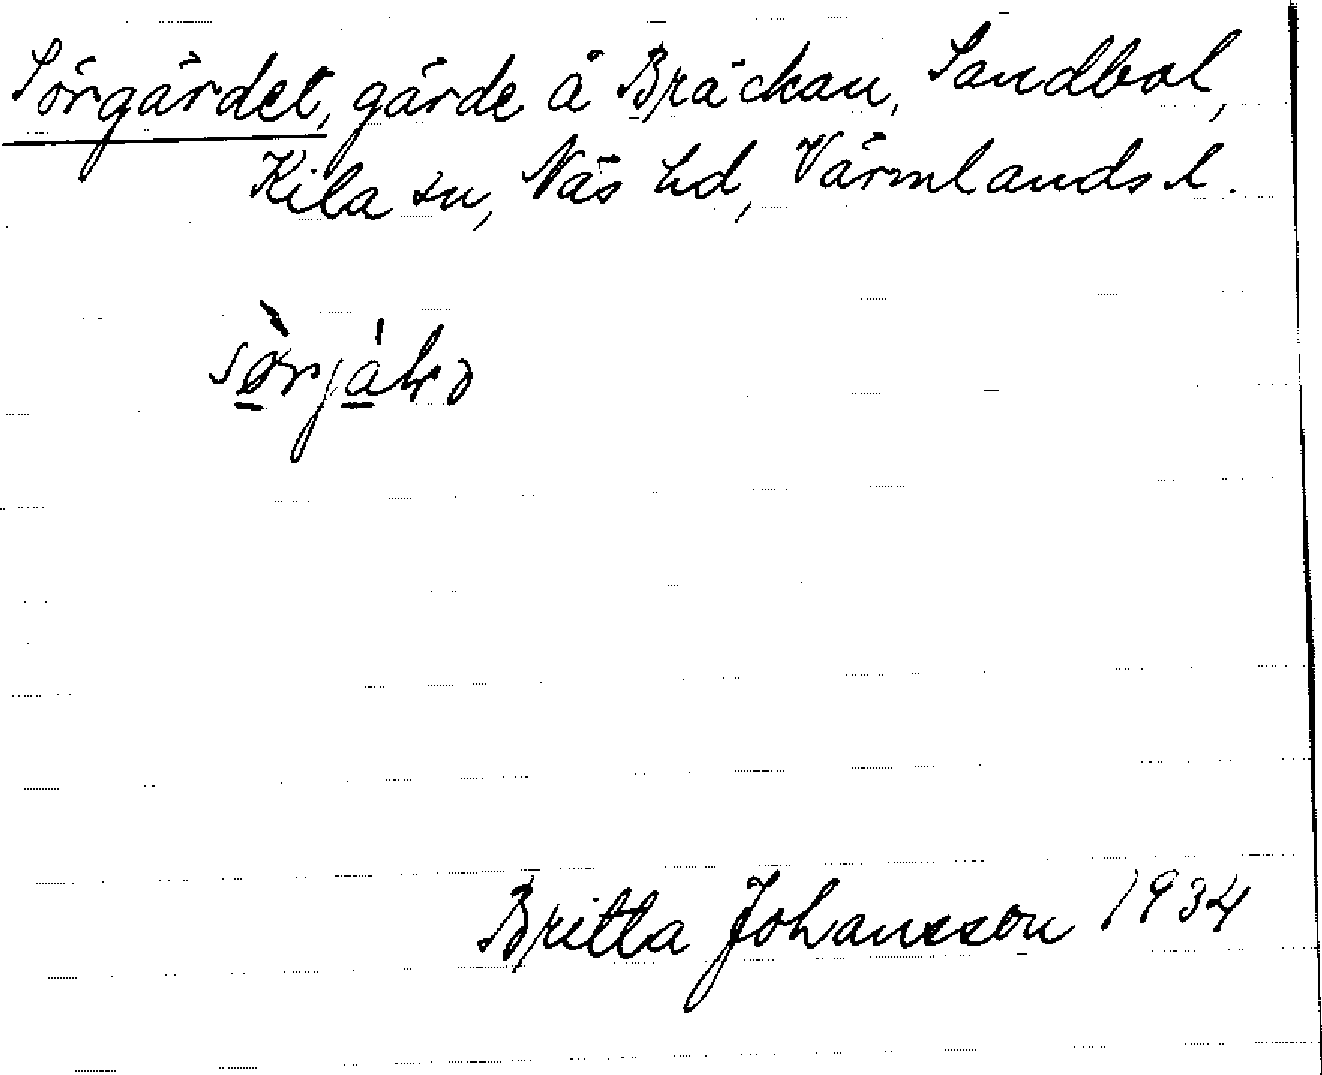 Sörgärdet, gärde å Bräckan, Sandbol,
Kila sn, Näs hd, Värmlands l.
Britta Johansson 1934